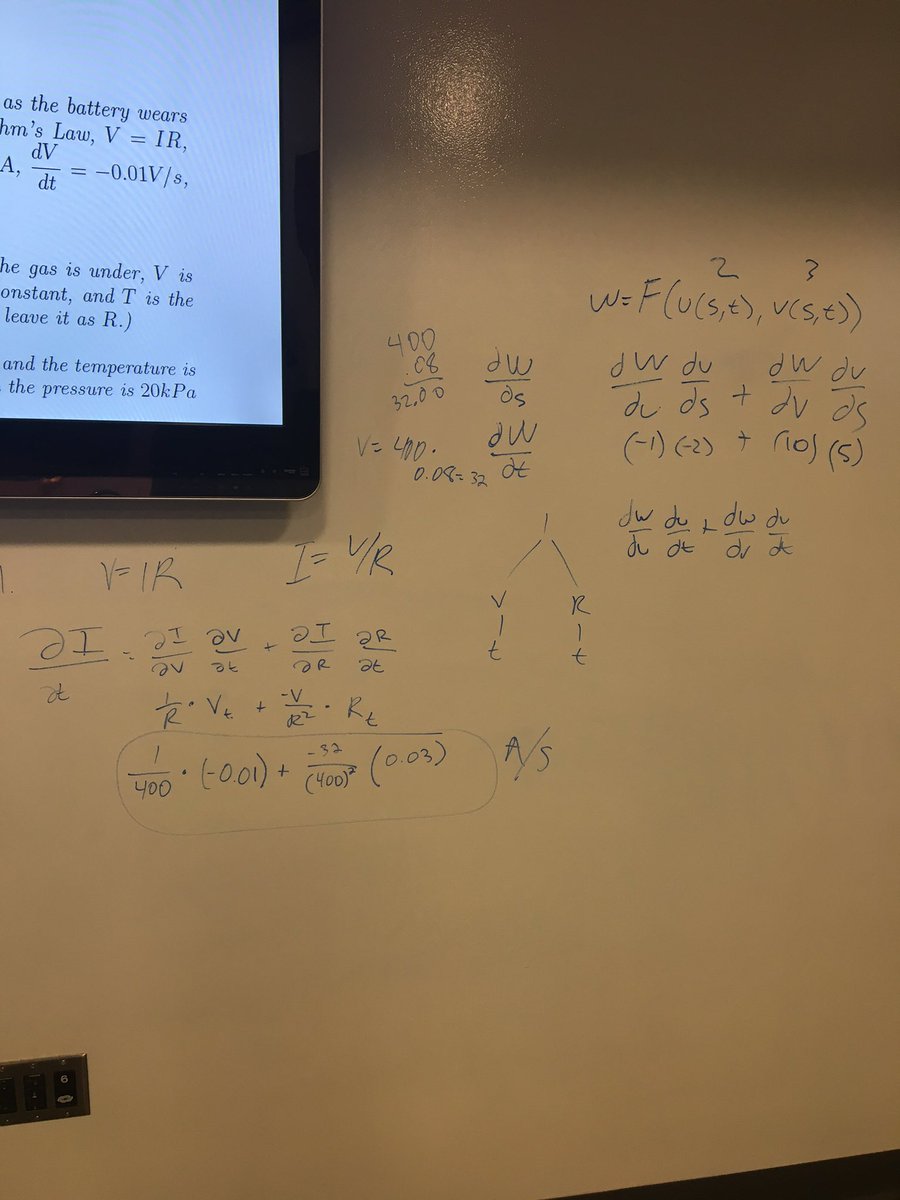 as the battery wears
hm's Law, V = IR,
A, dV/dt = −0.01V/s,
he gas is under, V is
onstant, and T is the
leave it as R.)
and the temperature is
the pressure is 20kPa
2 3
W=F(u(s,t), v(s,t))
400
.08
32.00
V= 400.
0.08= 32
∂W/∂s
∂W/∂t
dW/du du/ds + dW/dv dv/ds
(-1)(-2) + (10)(5)
dw/du du/dt + dw/dv dv/dt
1.
V=IR
I= V/R
I
V R
t t
∂I/∂t = ∂I/∂V ∂V/∂t + ∂I/∂R ∂R/∂t
1/R · Vt + -V/R² · Rt
1/400 · (-0.01) + -32/(400)² (0.03) A/s
6